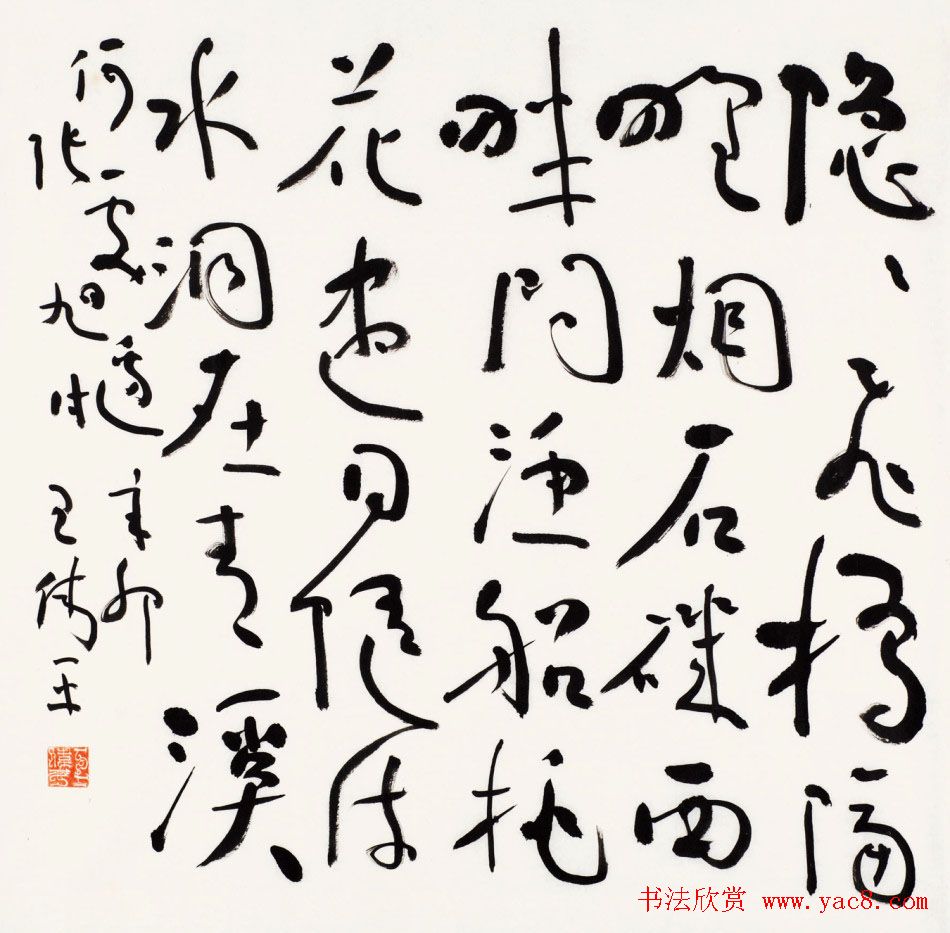 隐、飞桥隔
野烟石矶西
畔问渔船桃
花尽日随流
水洞在青溪
何处边 辛卯
张旭 王伟平
书法欣赏 www.yac8.com